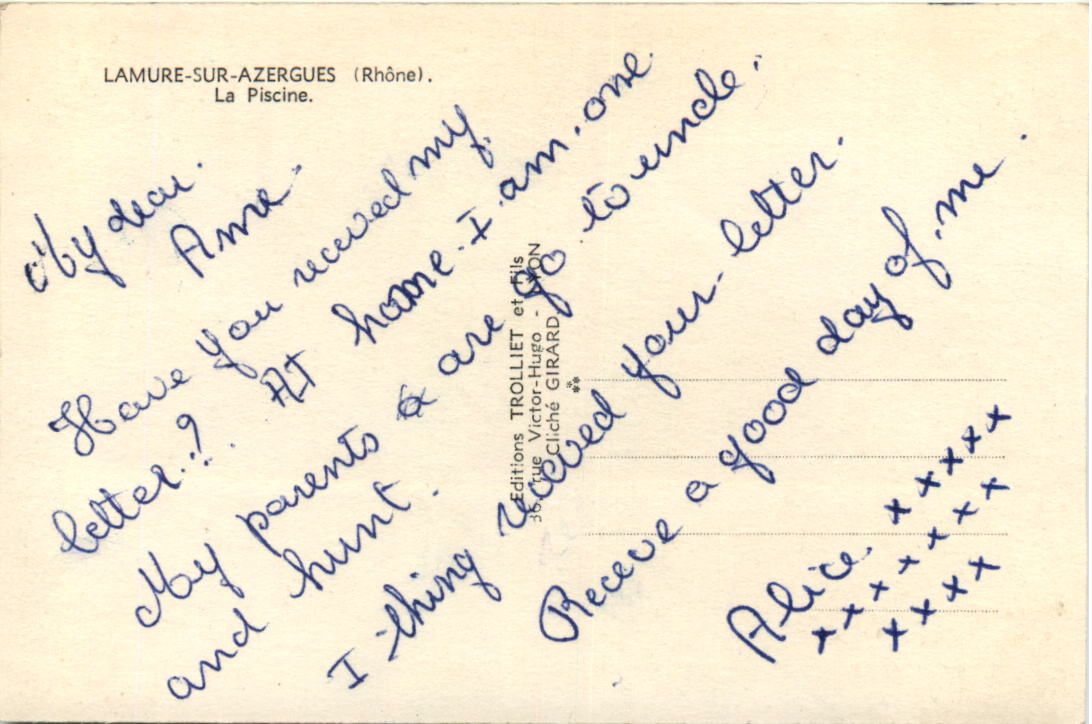 LAMURE-SUR-AZERGUES (Rhône).
La Piscine.
My dear.
Anne.
Have you received my
letter.? At home I am. one.
My parents are go to uncle.
and hunt.
I thing received your letter.
Receve a good day of me.
Alice. x x x x x
x x x x x x x
x x x x
Editions TROLLIET et Fils
36, rue Victor-Hugo - LYON
Cliché GIRARD